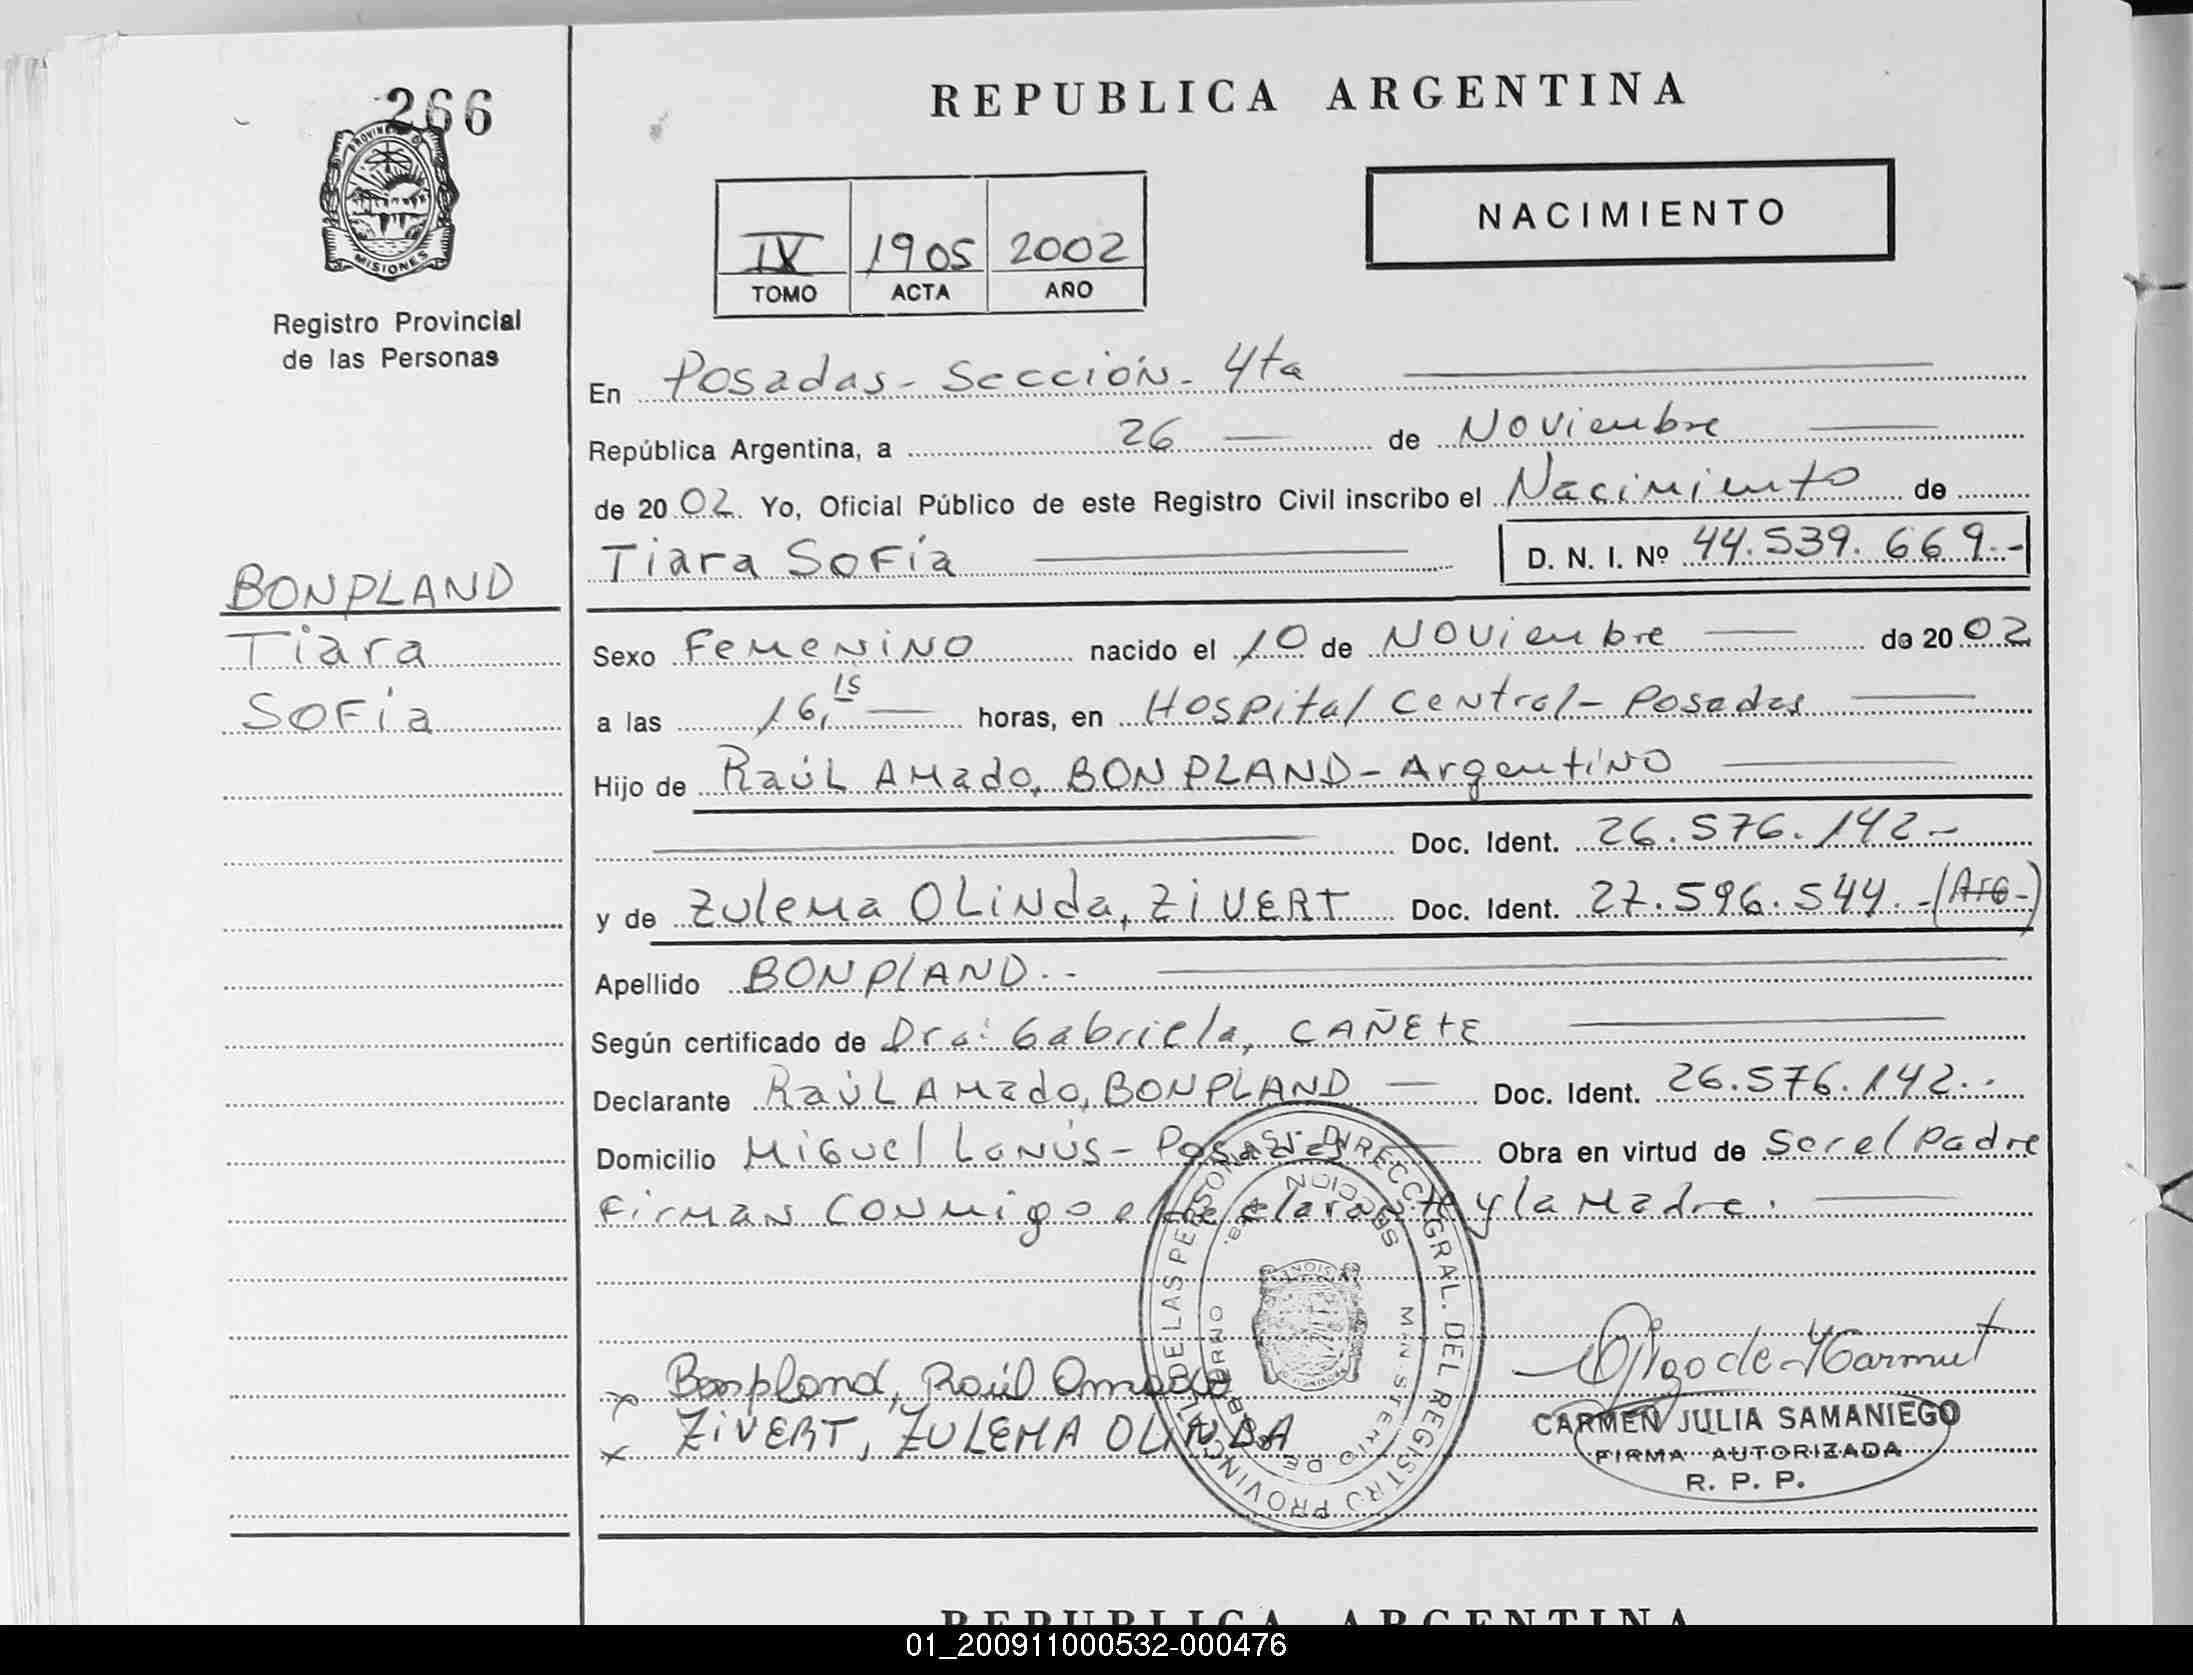 266
PROVINCIA
MISIONES
Registro Provincial
de las Personas
REPUBLICA ARGENTINA
IV 1905 2002
TOMO ACTA AÑO
NACIMIENTO
En Posadas - Sección - 4ta
República Argentina, a 26 de Noviembre
de 2002. Yo, Oficial Público de este Registro Civil inscribo el Nacimiento de
Tiara Sofía D. N. I. Nº 44.539.669.-
BONPLAND
Tiara
Sofía
Sexo Femenino nacido el 10 de Noviembre de 2002
a las 16,15 horas, en Hospital Central - Posadas
Hijo de Raúl Amado, BONPLAND - Argentino
Doc. Ident. 26.576.142.-
y de Zulema Olinda, ZIVERT Doc. Ident. 27.596.544.-(Arg-)
Apellido BONPLAND.-
Según certificado de Dra: Gabriela, CAÑEtE
Declarante Raúl Amado, BONPLAND Doc. Ident. 26.576.142.-
Domicilio Miguel Lanús - Posadas Obra en virtud de Ser el Padre
Firman conmigo el declarante y la Madre.
DIRECC. GRAL. DEL REGISTRO PROVINCIAL DE LAS PERSONAS
MINISTERIO DE GOBIERNO
SECCION 4ta.
Bonpland, Raúl Amado
ZIVERT, ZULEMA OLINDA
CARMEN JULIA SAMANIEGO
FIRMA AUTORIZADA
R. P. P.
REPUBLICA ARGENTINA
01_200911000532-000476